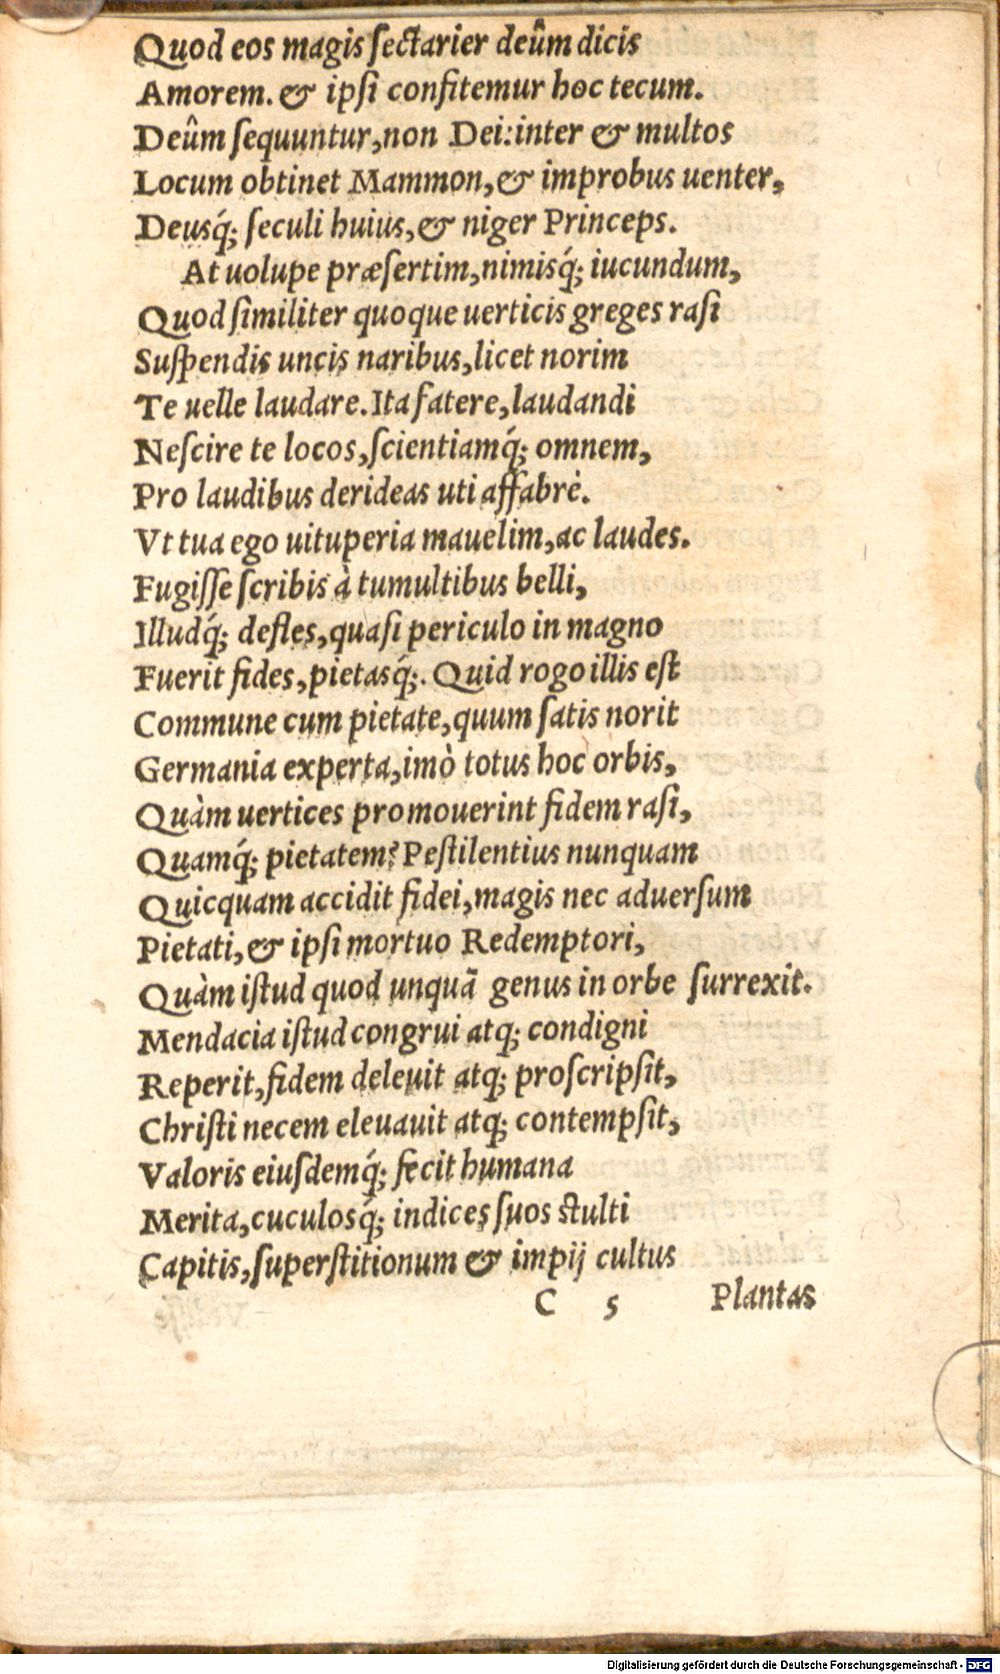 Quod eos magis ſectarier deûm dicis
Amorem. & ipſi confitemur hoc tecum.
Deûm ſequuntur, non Dei: inter & multos
Locum obtinet Mammon, & improbus uenter,
Deusq́; ſeculi huius, & niger Princeps.
At uolupe præſertim, nimisq́; iucundum,
Quod ſimiliter quoque uerticis greges raſi
Suſpendis uncis naribus, licet norim
Te uelle laudare. Ita fatere, laudandi
Neſcire te locos, ſcientiamq́; omnem,
Pro laudibus derideas uti affabrè.
Vt tua ego uituperia mauelim, ac laudes.
Fugiſſe ſcribis à tumultibus belli,
Illudq́; defles, quaſi periculo in magno
Fuerit fides, pietasq́;. Quid rogo illis eſt
Commune cum pietate, quum ſatis norit
Germania experta, imò totus hoc orbis,
Quàm uertices promouerint fidem raſi,
Quamq́; pietatem? Peſtilentius nunquam
Quicquam accidit fidei, magis nec aduerſum
Pietati, & ipſi mortuo Redemptori,
Quàm iſtud quod unquā genus in orbe ſurrexit.
Mendacia iſtud congrui atq; condigni
Reperit, fidem deleuit atq; proſcripſit,
Chriſti necem eleuauit atq; contempſit,
Valoris eiuſdemq́; fecit humana
Merita, cuculosq́; indices ſuos ſtulti
Capitis, ſuperſtitionum & impij cultus
C 5 Plantas
Digitalisierung gefördert durch die Deutsche Forschungsgemeinschaft - DFG